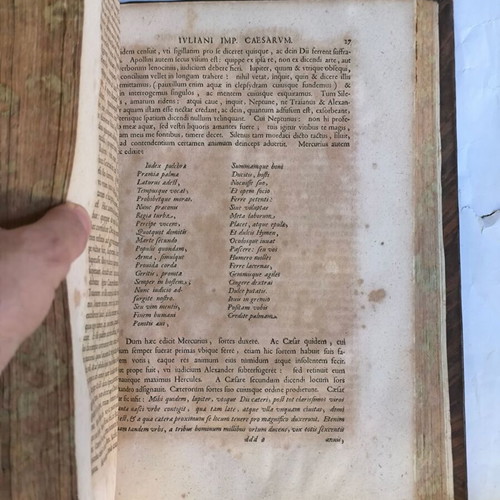 IVLIANI IMP. CAESARVM. 27
idem censuit, vti sigillatim pro se diceret quisque, ac dein Dii ferrent suffra-
Apollini autem secus visum est: quippe ex ipsa re, non ex dicendi arte, aut
verborum lenociniis, iudicium debere fieri. Iupiter, quum & vtrique obsequi,
concilium vellet in longum trahere: nihil vetat, inquit, quin & dicere illis
permittamus, (pauxillum enim aquæ in clepsydram cuique fundemus) &
interrogemus singulos, ac mentem cuiusque exquiramus. Tum Sile-
, amarum ridens: atqui caue, inquit, Neptune, ne Traianus & Alexan-
aquam istam esse nectar credant, ac dein, quantum adfusum est, exsorbeant,
spatium dicendi nullum relinquant. Cui Neptunus: non hi profe-
meæ aquæ, sed vestri liquoris amantes fuere; tuis igitur vitibus te magis,
am meis me fontibus, timere decet. Silenus tam mordaci dicto tactus, siluit,
ad contendentium certamen animum deinceps aduertit. Mercurius autem
edixit:
Iudex pulchra
Præmia palmæ
Laturus adest,
Tempusque vocat,
Prohibetque moras.
Nunc præconis
Regia turba,
Percipe vocem,
Quotquot domitis
Marte secundo
Populis quondam,
Arma, simulque
Prouida corda
Geritis, prompta
Semper in hostem,
Nunc indicio ad-
surgite nostro.
Seu vim mentis,
Finem humani
Ponitis æui,
Summamque boni
Ducitis, hosti
Nocuisse suo,
Et opem socio
Ferre potenti:
Siue voluptas
Meta laborum,
Placet, atque epulæ,
Et dulcis Hymen,
Oculosque iuuat
Pascere: seu vos
Humero molles
Ferre lacernas,
Gemmisque agiles
Cingere dextras
Dulce putatis.
Iouis in gremio
Positam vobis
Credite palmam.
Dum hæc edicit Mercurius, sortes duxere. Ac Cæsar quidem, cui
semper fuerat primas vbique ferre, etiam hic sortem habuit suis fa-
votis; eaque res animum eius tumidum atque insolentem fecit.
prope fuit, vti iudicium Alexander subterfugeret: sed retinuit eum
maximus Hercules. A Cæsare secundum dicendi locum sors
adsignauit. Cæterorum sortes suo cuiusque ordine prodierunt. Cæsar
cœpit: Mihi quidem, Iupiter, vosque Dii cæteri, post tot clarissimos viros
nasci vrbe contigit, quæ tam late, atque vlla vnquam ciuitas, domi-
, & a qua cætera proximum se locum tenere pro magnifico duxerunt. Etenim
tandem vrbs, a tribus hominum millibus ortum ducens, vix totis sexcentis
ddd 2 annis,